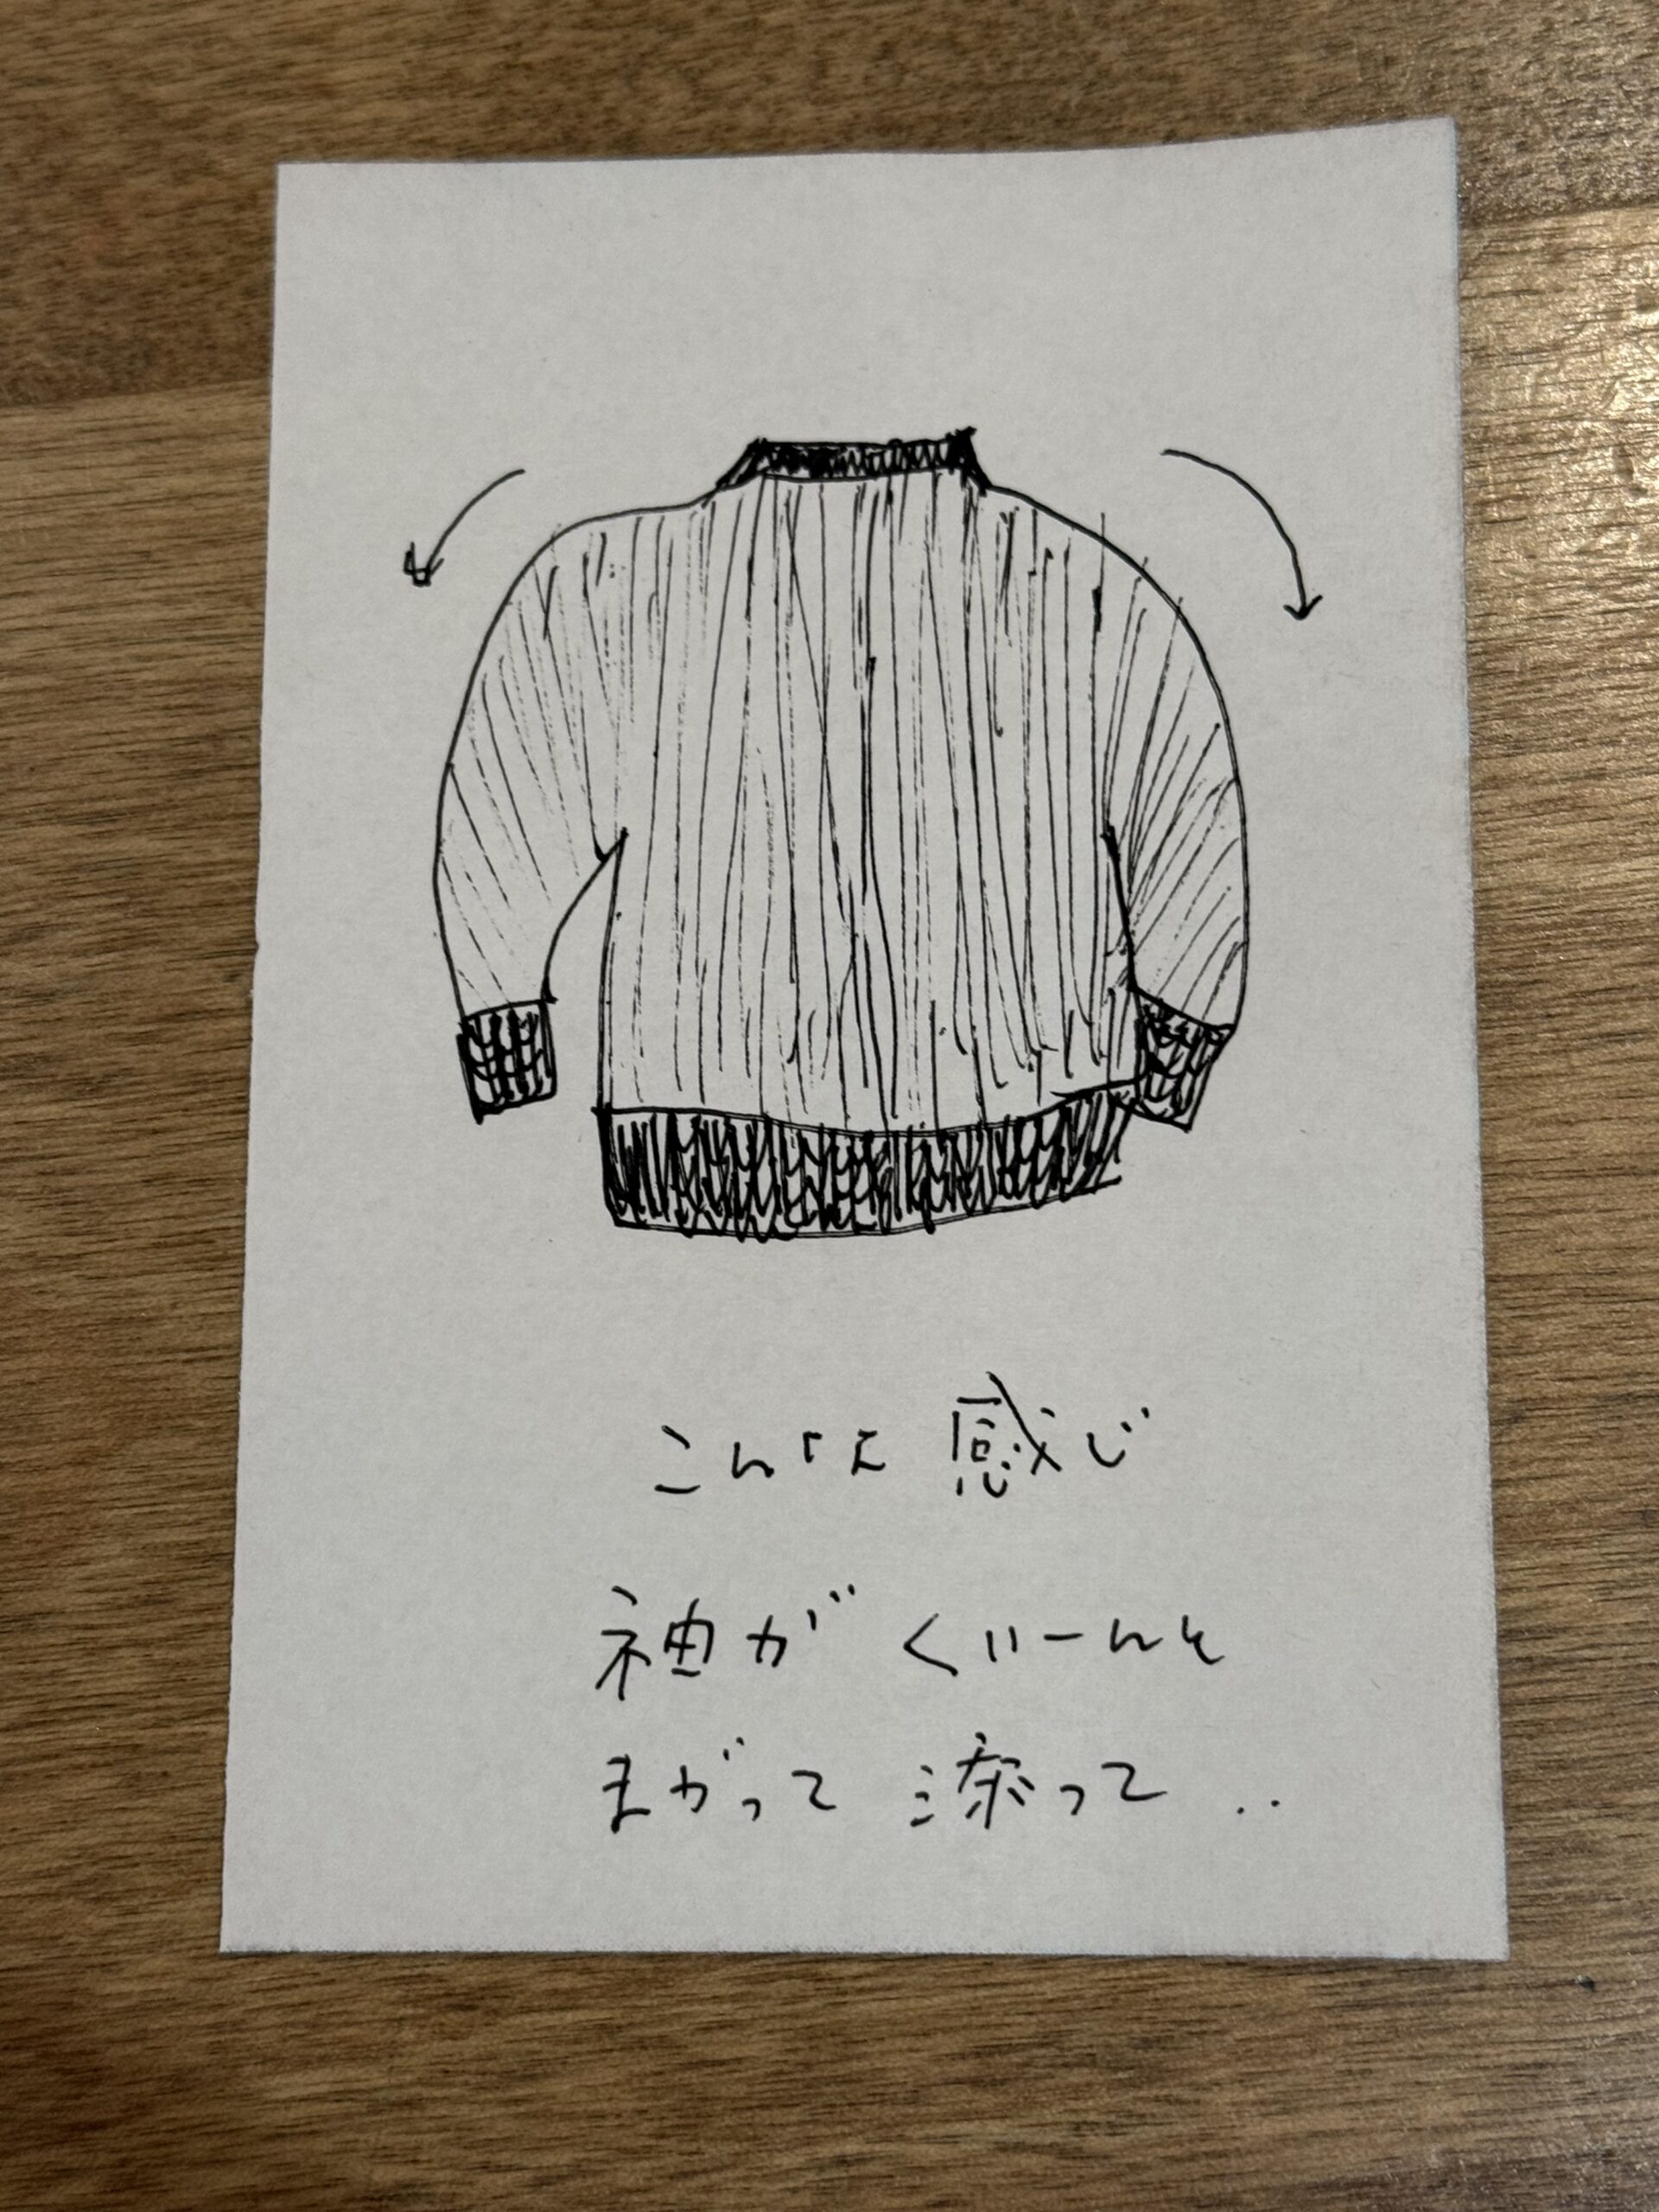 こんな感じ
袖がくいーんと
まがって添って..